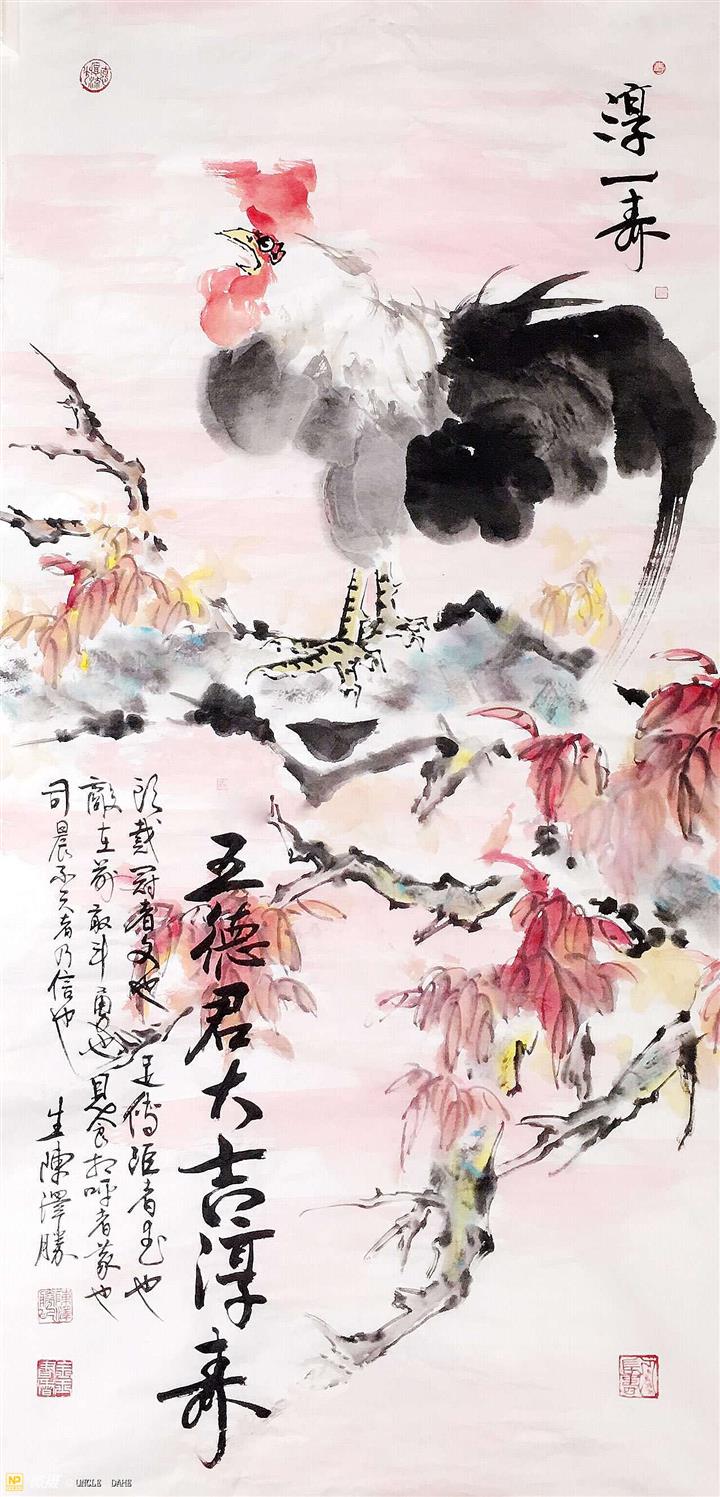 淳一寿
五德君大吉淳寿
头戴冠者文也 足傅距者武也
敵在前敢斗勇也 見食相呼者義也
司晨不失者乃信也
生陳澤勝
NP
UNCLE DAHE